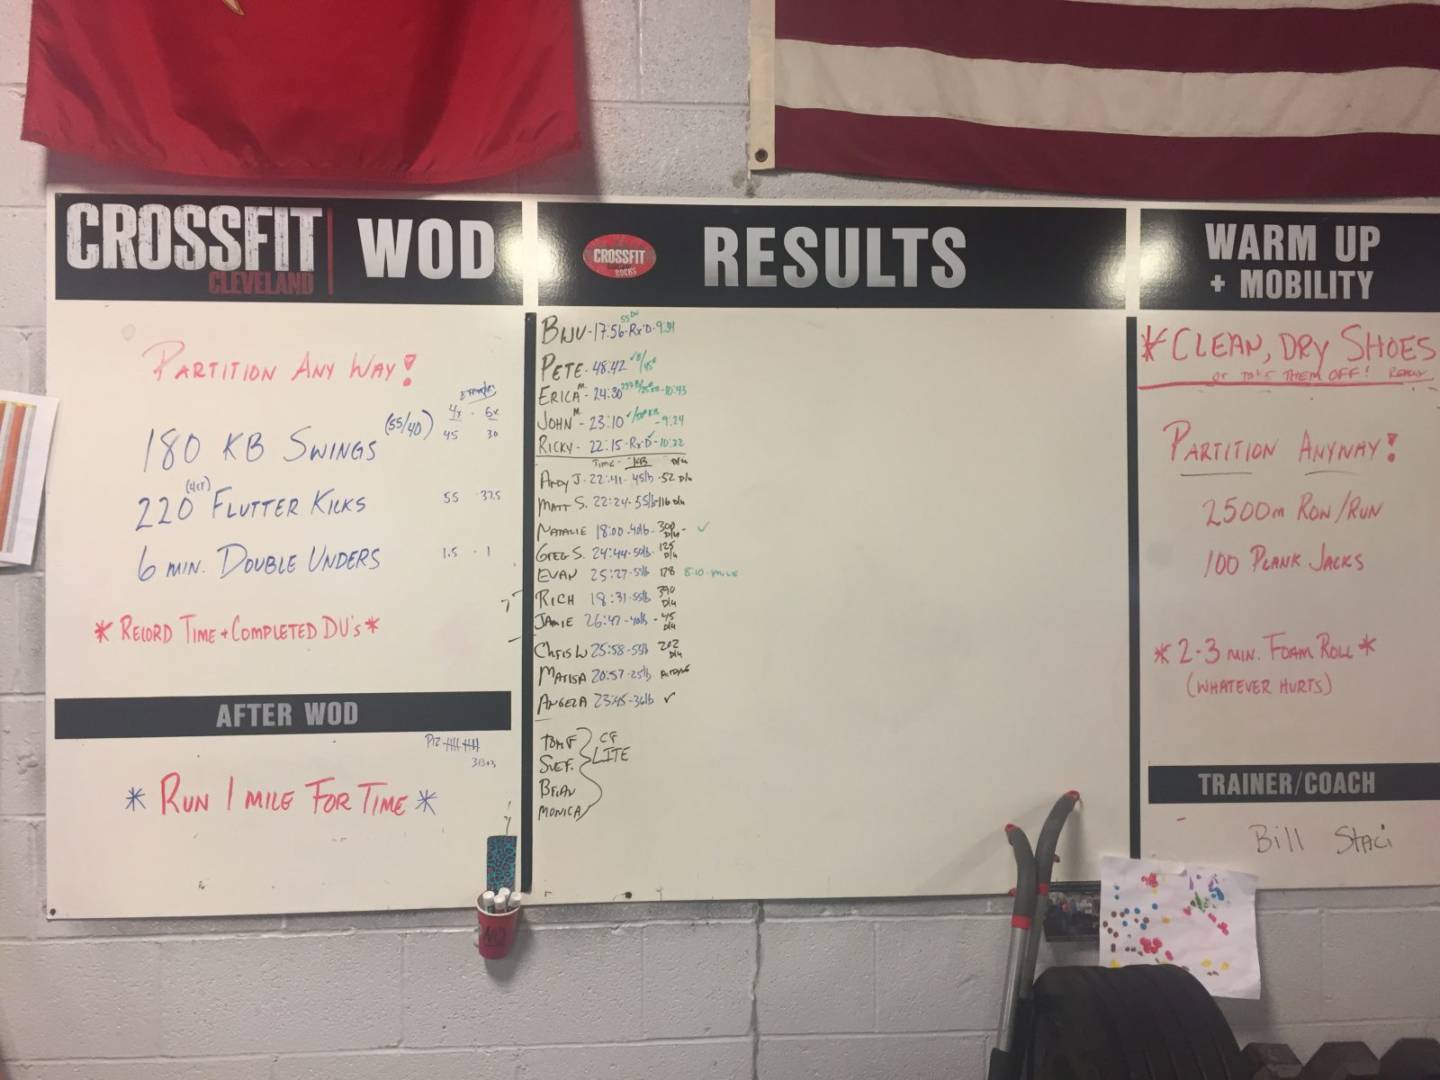 CROSSFIT
CLEVELAND
WOD
PARTITION ANY WAY!
EXAMPLES
4x - 6x
180 KB SWINGS (55/40) 45 30
220 (4CT) FLUTTER KICKS 55 - 37.5
6 MIN. DOUBLE UNDERS 1.5 - 1
* RECORD TIME + COMPLETED DU's *
AFTER WOD
* RUN 1 MILE FOR TIME *
CROSSFIT
ROCKS
RESULTS
17:56-RxD-9:31
PETE-48:42
ERICA M - 24:30 10:43
JOHN M - 23:10 -9:24
RICKY- 22:15-RxD-10:22
TIME - KB D/U
ANDY J. 22:41-45lb-52 D/U
MATT S. 22:24-55lb-116 D/U
NATALIE 18:00-40lb-300 D/U - ✓
GREG S. 24:44-50lb-125 D/U
EVAN 25:27-55lb 128 8:10-MILE
RICH 18:31-55lb 390 D/U
JAMIE 26:47-40lb-45 D/U
CHRIS W 25:58-55lb 202 D/U
MARISA 20:57-25lb
ANGELA 23:45-36lb ✓
TOM F CF
SUE F. LITE
BRIAN
MONICA
WARM UP
+ MOBILITY
*CLEAN, DRY SHOES
or TAKE THEM OFF! REALLY
PARTITION ANYWAY!
2500m ROW/RUN
100 PLANK JACKS
* 2-3 MIN. FOAM ROLL *
(WHATEVER HURTS)
TRAINER/COACH
Bill Staci